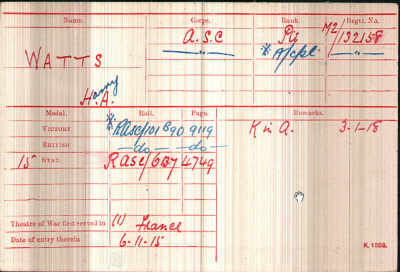 Name. Corps. Rank. Regtl. No.
WATTS A.S.C Pte M2/132158
" * A/Cpl. "
Harry
H.A.
Medal. Roll. Page. Remarks.
VICTORY * RASC/101 B90 9119 K in A. 3-1-18
BRITISH -do- -do-
15 STAR RASC/6B7 4749
Theatre of War first served in (1) France
Date of entry therein 6-11-15
K. 1380.